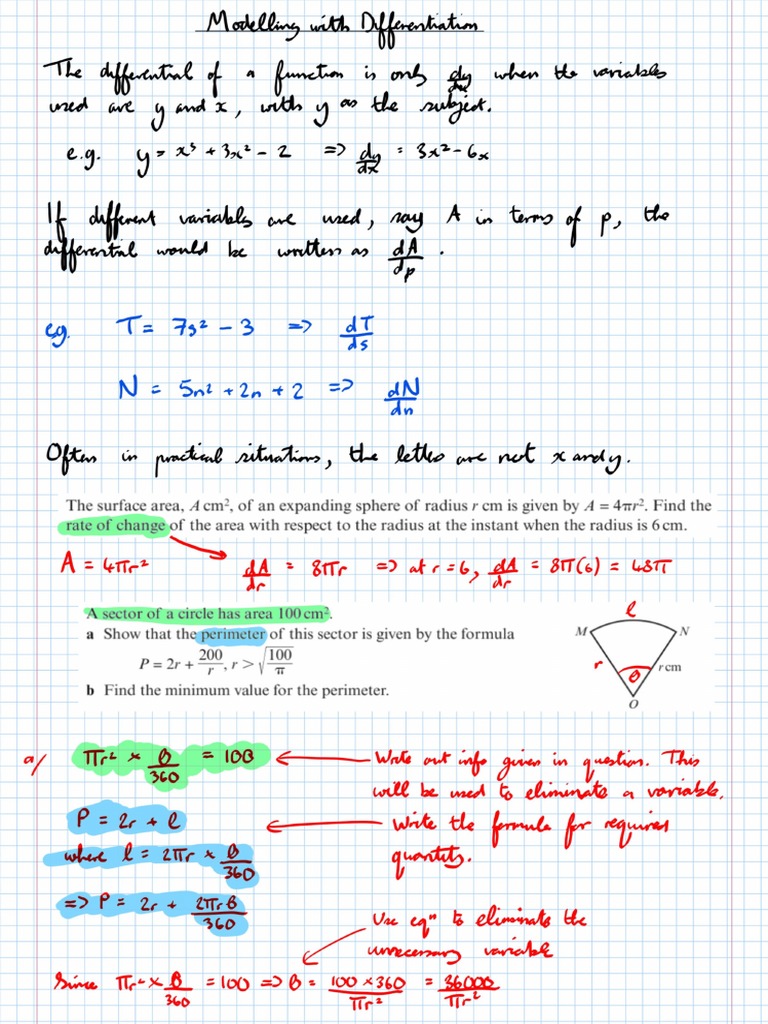 Modelling with Differentiation
The differential of a function is only dy/dx when the variables
used are y and x, with y as the subject.
e.g. y = x³ + 3x² - 2 => dy/dx = 3x² - 6x
If different variables are used, say A in terms of p, the
differential would be written as dA/dp.
eg. T = 7s² - 3 => dT/ds
N = 5n² + 2n + 2 => dN/dn
Often in practical situations, the letters are not x and y.
The surface area, A cm², of an expanding sphere of radius r cm is given by A = 4πr². Find the
rate of change of the area with respect to the radius at the instant when the radius is 6 cm.
A = 4πr² dA/dr = 8πr => at r = 6, dA/dr = 8π(6) = 48π
A sector of a circle has area 100 cm².
a Show that the perimeter of this sector is given by the formula
P = 2r + 200/r, r > √(100/π)
b Find the minimum value for the perimeter.
l
M N
r θ r cm
O
a/ πr² × θ/360 = 100 ← Write out info given in question. This
will be used to eliminate a variable.
P = 2r + l ← Write the formula for required
quantity.
where l = 2πr × θ/360
=> P = 2r + 2πrθ/360
Use eqⁿ to eliminate the
unnecessary variable
Since πr² × θ/360 = 100 => θ = 100 × 360/πr² = 36000/πr²